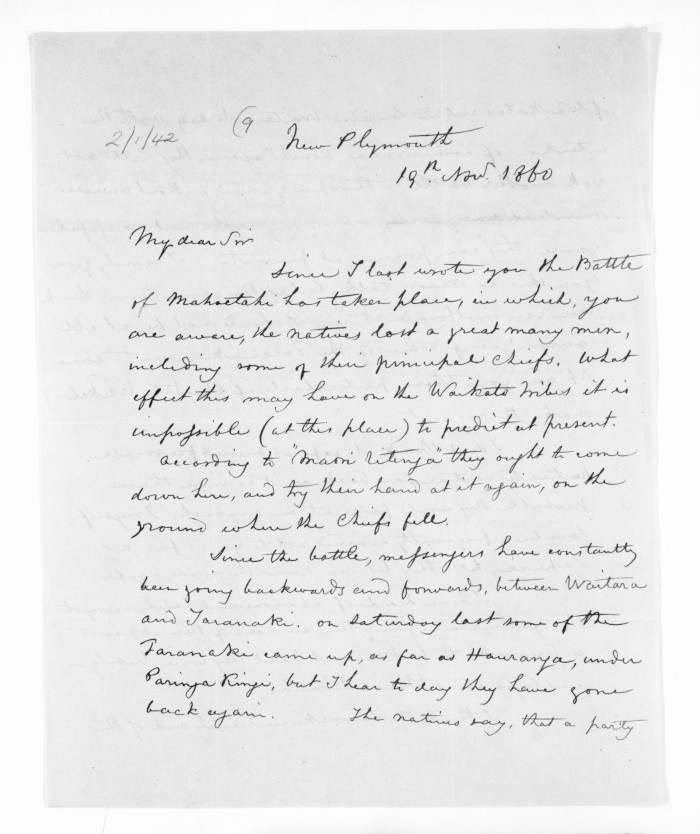 2/1/42
(9
New Plymouth
19th Novr. 1860
My dear Sir
Since I last wrote you the Battle
of Mahoetahi has taken place, in which, you
are aware, the natives lost a great many men,
including some of their principal Chiefs. What
effect this may have on the Waikato tribes it is
impossible (at this place) to predict at present.
According to "Maori tikanga" they ought to come
down here, and try their hand at it again, on the
ground where the Chiefs fell.
Since the battle, messingers have constantly
been going backwards and forwards, between Waitara
and Taranaki. on Saturday last some of the
Taranaki came up, as far as Hauranga, under
Paringa Kingi, but I hear to day they have gone
back again. The natives say, that a party